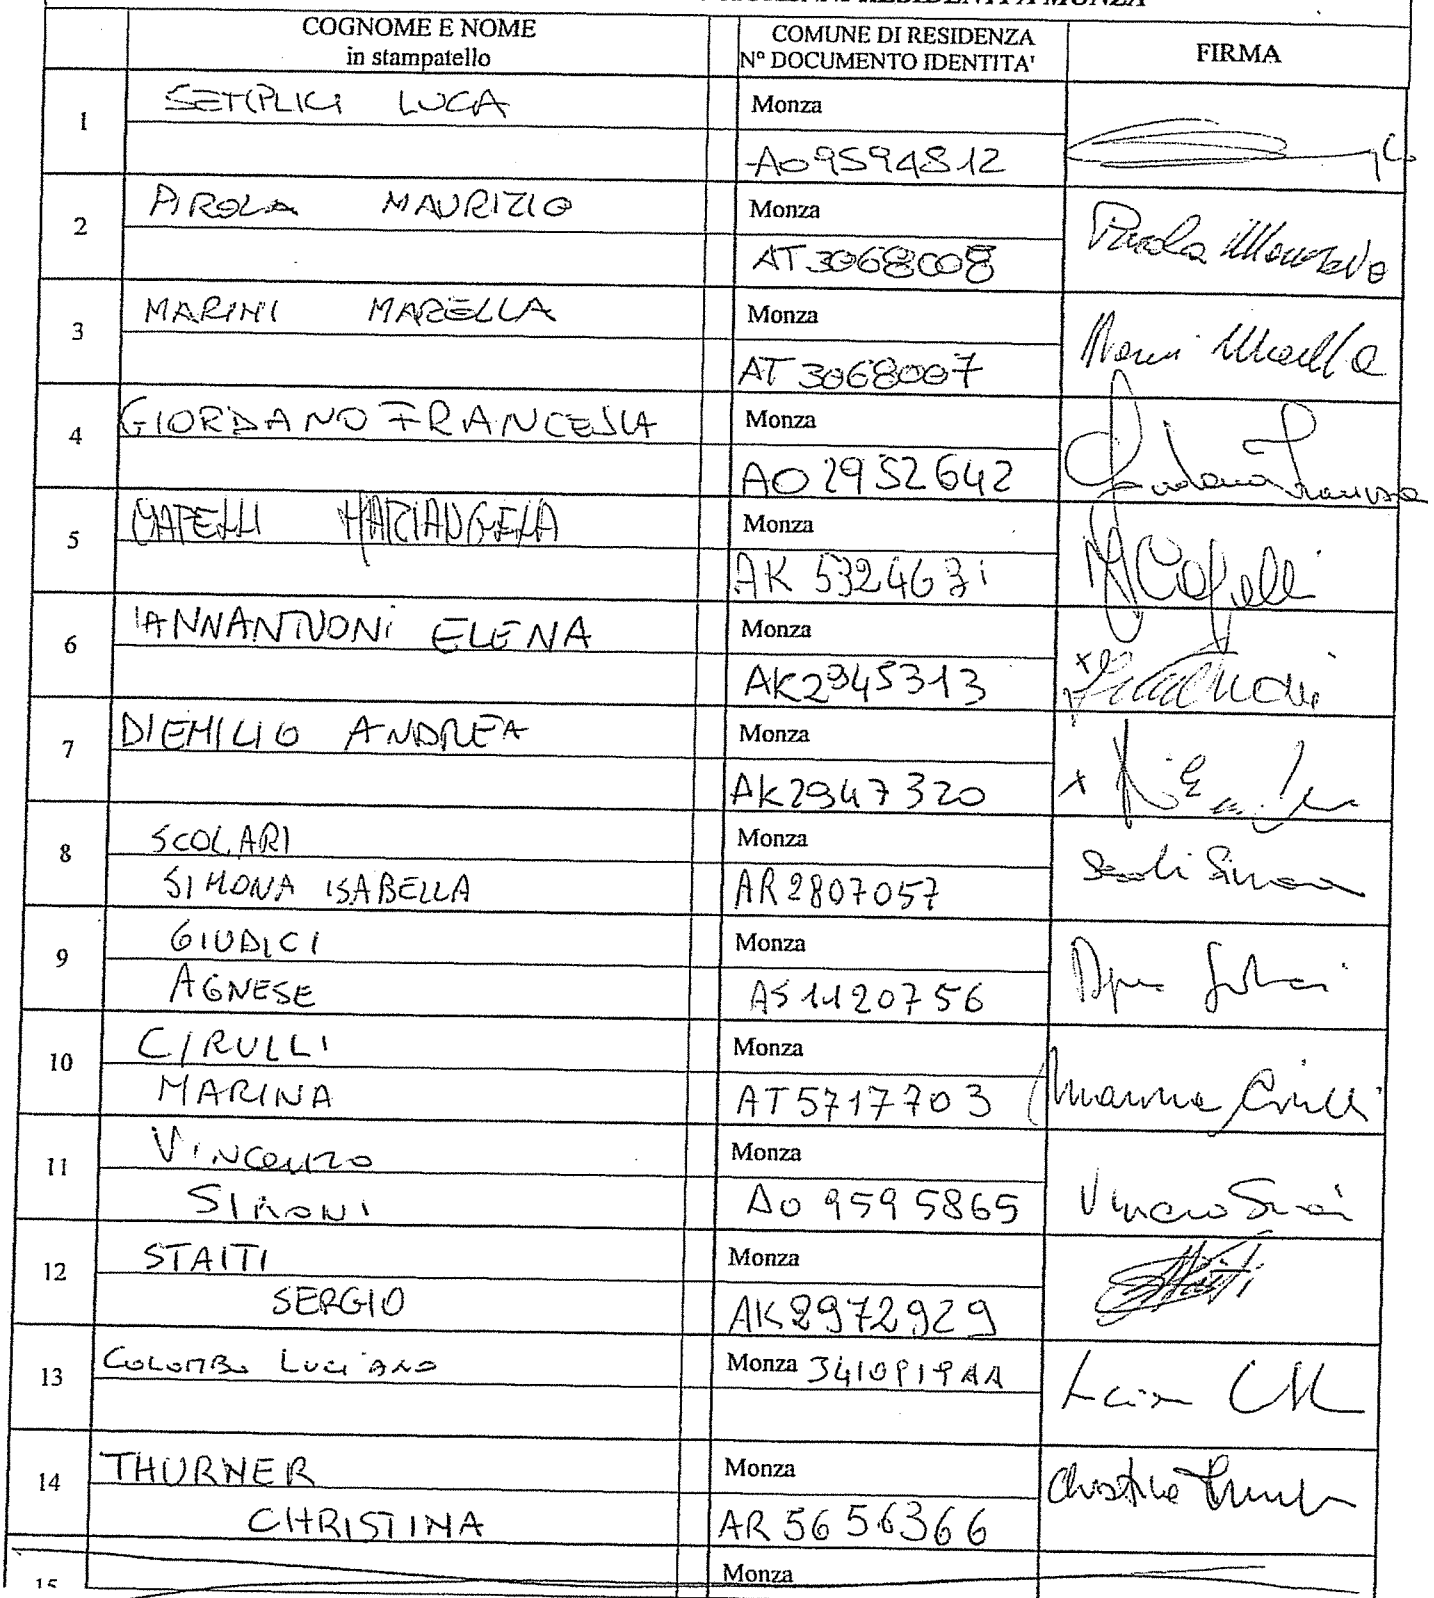 RESIDENTI A MONZA
COGNOME E NOME
in stampatello
COMUNE DI RESIDENZA
N° DOCUMENTO IDENTITA'
FIRMA
1
SEMPLICI LUCA
Monza
AO9594812
2
PIROLA MAURIZIO
Monza
AT3068008
Pirola Maurizio
3
MARINI MARELLA
Monza
AT3068007
Marini Marella
4
GIORDANO FRANCESCA
Monza
AO2952642
Giordano Francesca
5
CAPELLI MARIANGELA
Monza
AK 5324671
M Capelli
6
IANNANTUONI ELENA
Monza
AK2945313
7
DIEMILIO ANDREA
Monza
AK2947320
8
SCOLARI
SIMONA ISABELLA
Monza
AR2807057
Scolari Simona
9
GIUDICI
AGNESE
Monza
AS1120756
Agnese Giudici
10
CIRULLI
MARINA
Monza
AT5717703
Marina Cirulli
11
VINCENZO
SIMONI
Monza
AO 9595865
Vincenzo Simoni
12
STAITI
SERGIO
Monza
AK8972929
Staiti
13
COLOMBO LUCIANO
Monza 3410919AA
14
THURNER
CHRISTINA
Monza
AR5656366
Christina Thurner
15
Monza